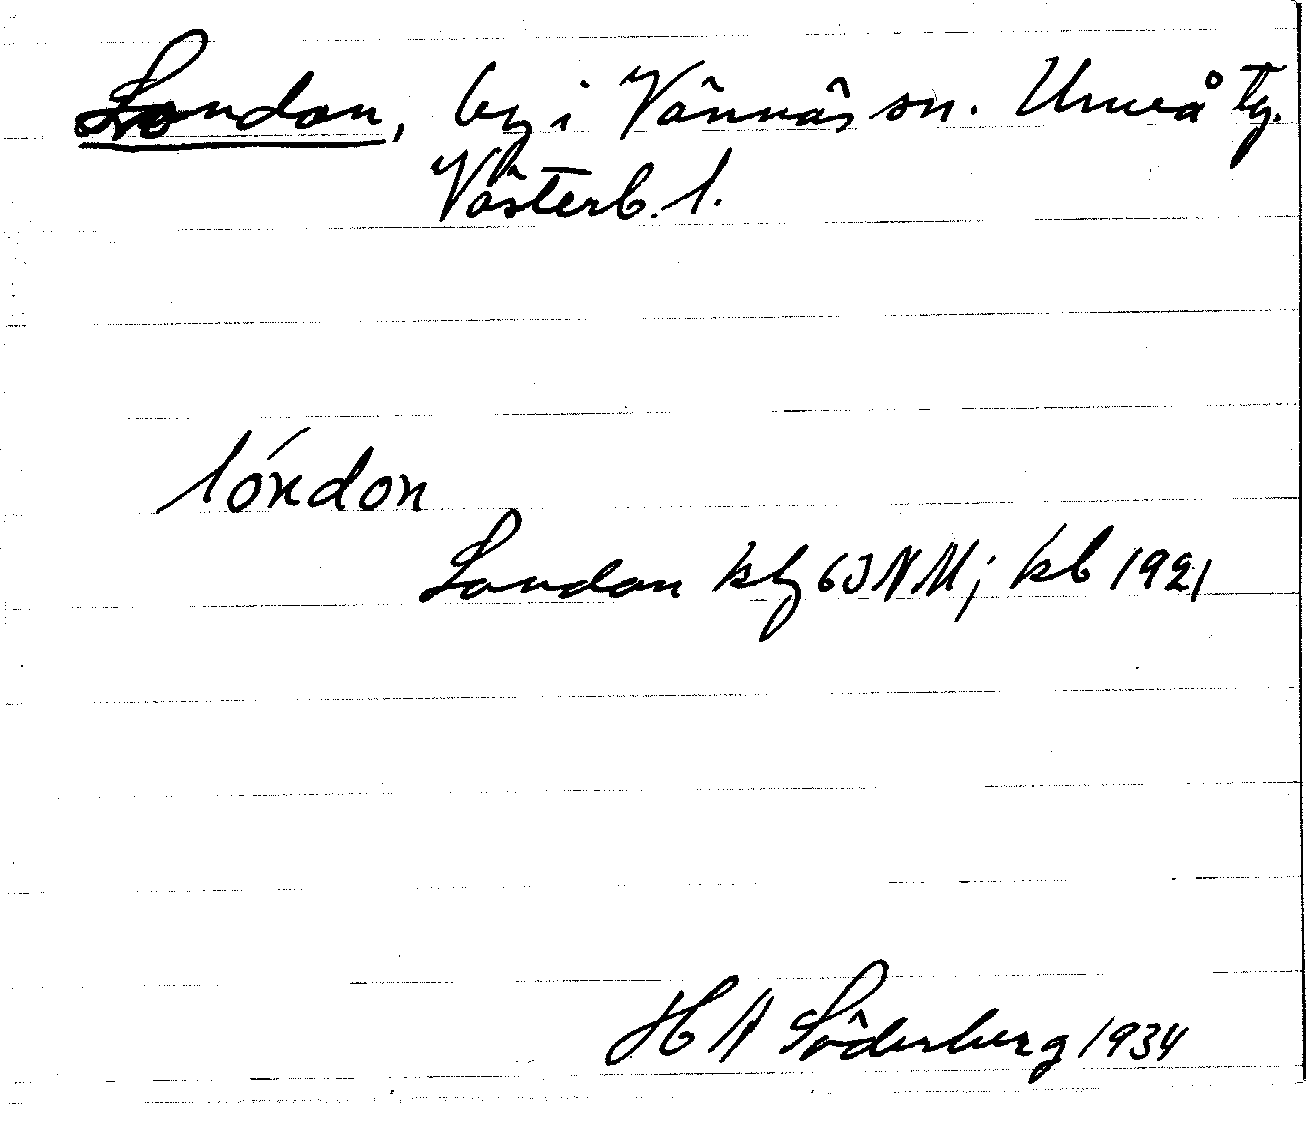 London, by i Vännäs sn. Umeå tg.
Västerb. l.
lóndon
London kbl 63 NM; kb 1921
H A Söderberg 1934